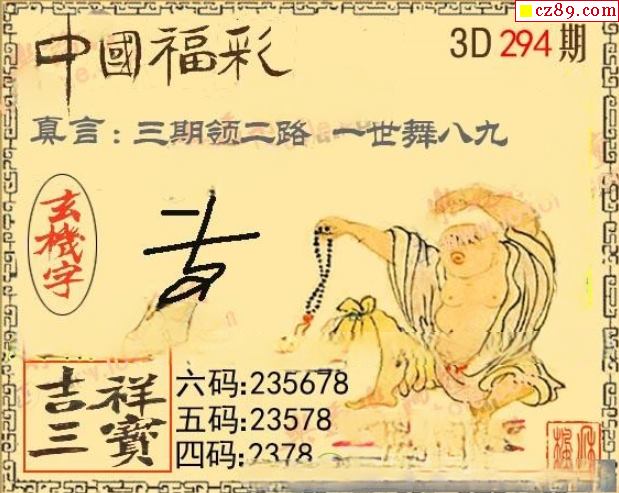 cz89.com
中國福彩
3D 294 期
真言：三期领二路 一世舞八九
玄機字
吉祥三寶
六码:235678
五码:23578
四码:2378